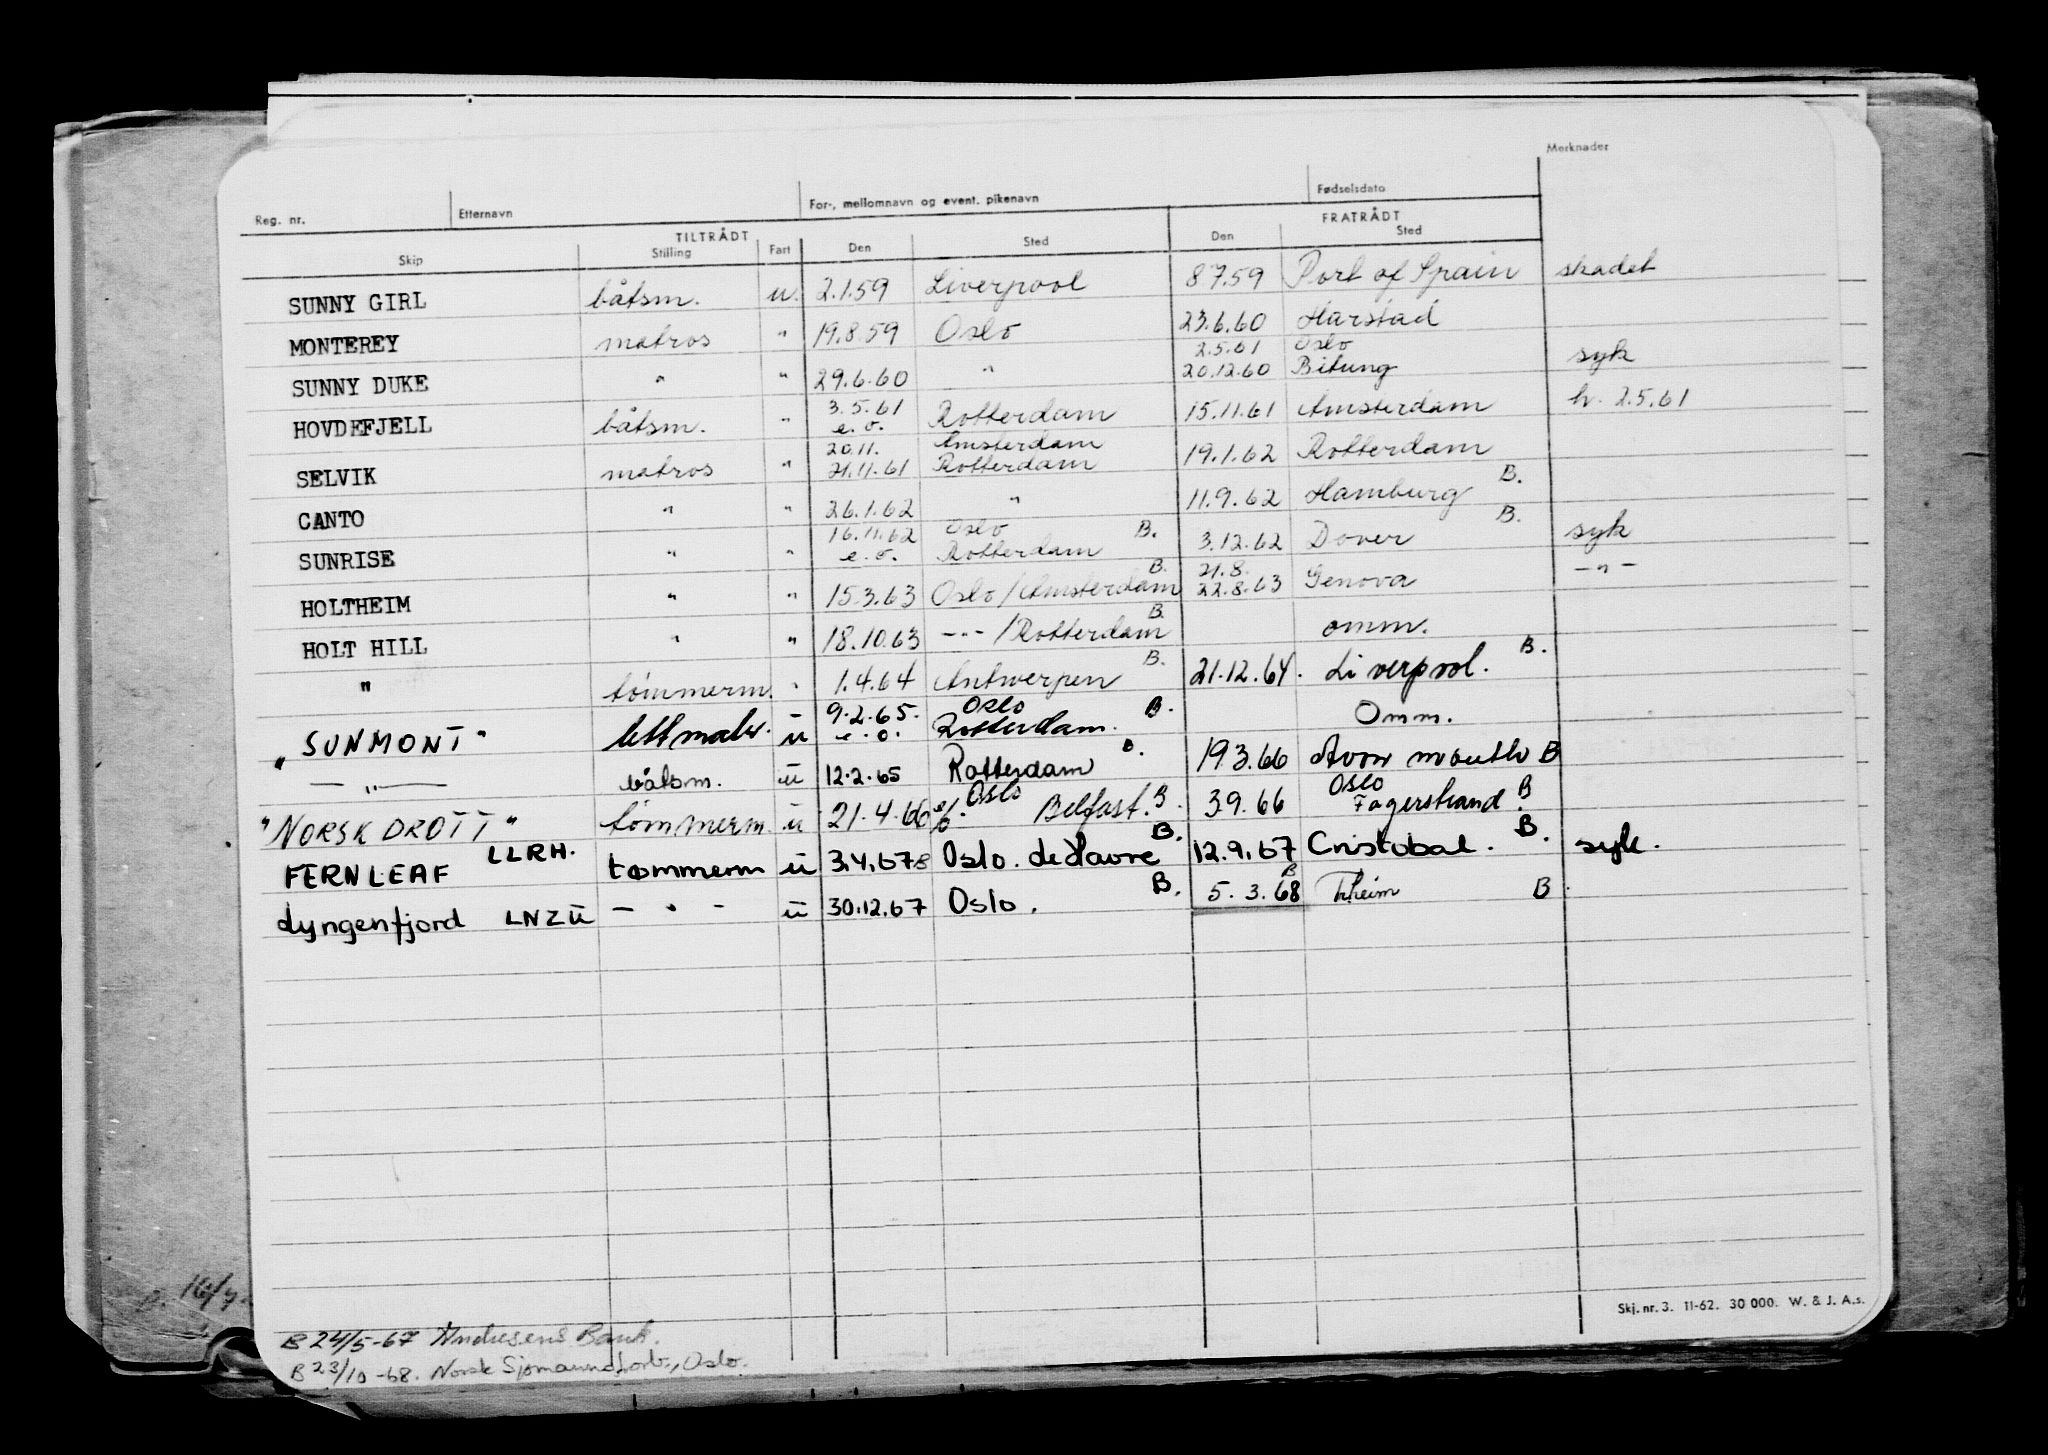 Merknader
Reg. nr. Etternavn For-, mellomnavn og event. pikenavn Fødselsdato
TILTRÅDT FRATRÅDT
Skip Stilling Fart Den Sted Den Sted
SUNNY GIRL båtsm. u. 2.1.59 Liverpool 8.7.59 Port of Spain skadet
MONTEREY matros " 19.8.59 Oslo 23.6.60 Harstad
2.5.61 Oslo
SUNNY DUKE " " 29.6.60 " 20.12.60 Bitung syk
3.5.61
HOVDEFJELL båtsm. " e.o. Rotterdam 15.11.61 Amsterdam h. 2.5.61
20.11. Amsterdam
SELVIK matros " 21.11.61 Rotterdam 19.1.62 Rotterdam
CANTO " " 26.1.62 " 11.9.62 Hamburg B.
16.11.62 Oslo B.
SUNRISE " " e.o. Rotterdam 3.12.62 Dover B. syk
21.8.
HOLTHEIM " " 15.3.63 Oslo/Amsterdam B. 22.8.63 Genova -"-
HOLT HILL " " 18.10.63 -"-/Rotterdam B. omm.
" tømmerm. " 1.4.64 Antwerpen B. 21.12.64. Liverpool. B.
9.2.65. Oslo
"SUNMONT" lettmatr. u e.o. Rotterdam. B. Omm.
— " — båtsm. u 12.2.65 Rotterdam B. 19.3.66 Avonmouth B
Oslo Oslo
"NORSK DROTT" tømmerm. u 21.4.66 e/o. Belfast. B. 3.9.66 Fagerstrand B.
FERNLEAF LLRH. tømmerm u 3.4.67 B Oslo. de Havre B. 12.9.67 Cristobal. B. syk.
Lyngenfjord LNZU - " - u 30.12.67 Oslo. B. 5.3.68 B Tr.heim B
Skj. nr. 3. 11-62. 30 000. W. & J. A.s.
B 24/5-67 Andresens Bank.
B 23/10-68. Norsk Sjømannsforb., Oslo.